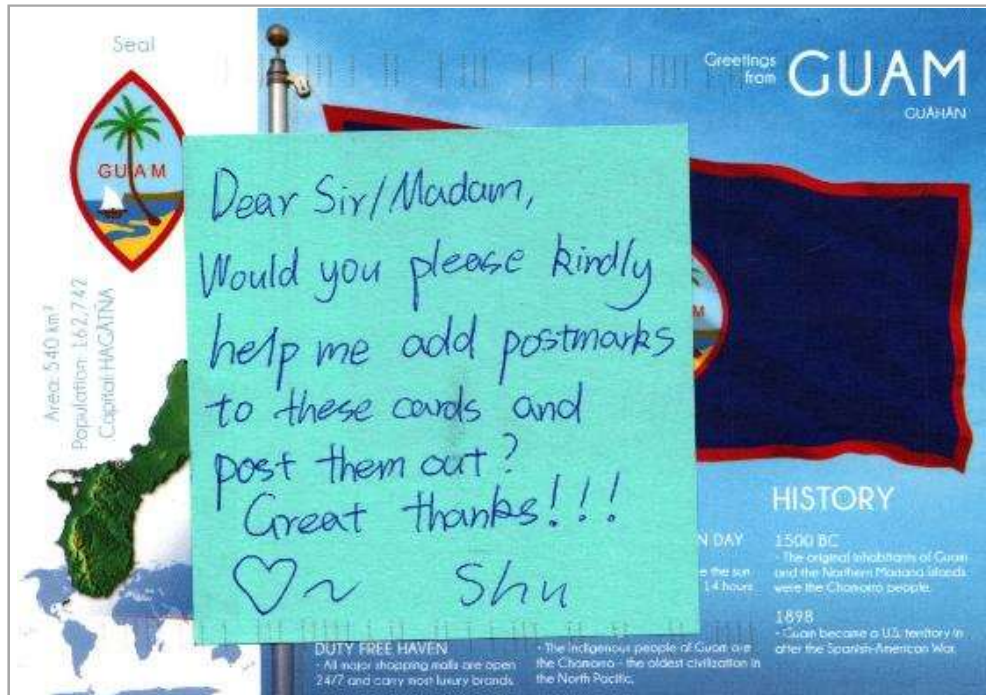 Seal
GUAM
Area: 540 km²
Population: 162,742
Capital: HAGÅTÑA
Greetings
from
GUAM
GUÅHÅN
Dear Sir/Madam,
Would you please kindly
help me add postmarks
to these cards and
post them out?
Great thanks!!!
♡~ Shu
M
HISTORY
N DAY
e the sun
14 hours
1500 BC
- The original inhabitants of Guam
and the Northern Mariana Islands
were the Chamorro people.
1898
- Guam became a U.S. territory in
after the Spanish-American War.
DUTY FREE HAVEN
- All major shopping malls are open
24/7 and carry most luxury brands.
- The indigenous people of Guam are
the Chamorro - the oldest civilization in
the North Pacific.